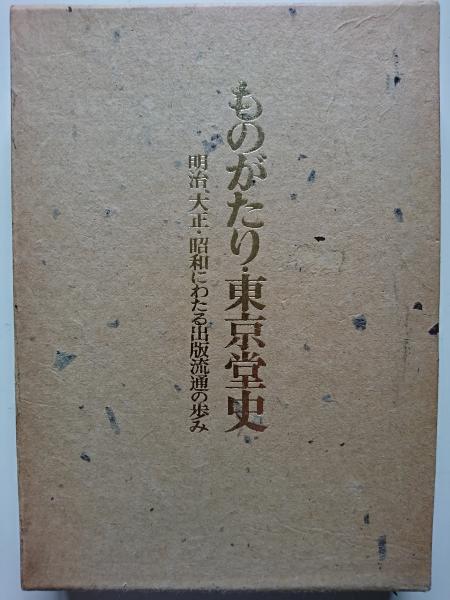 ものがたり・東京堂史
明治、大正・昭和にわたる出版流通の歩み